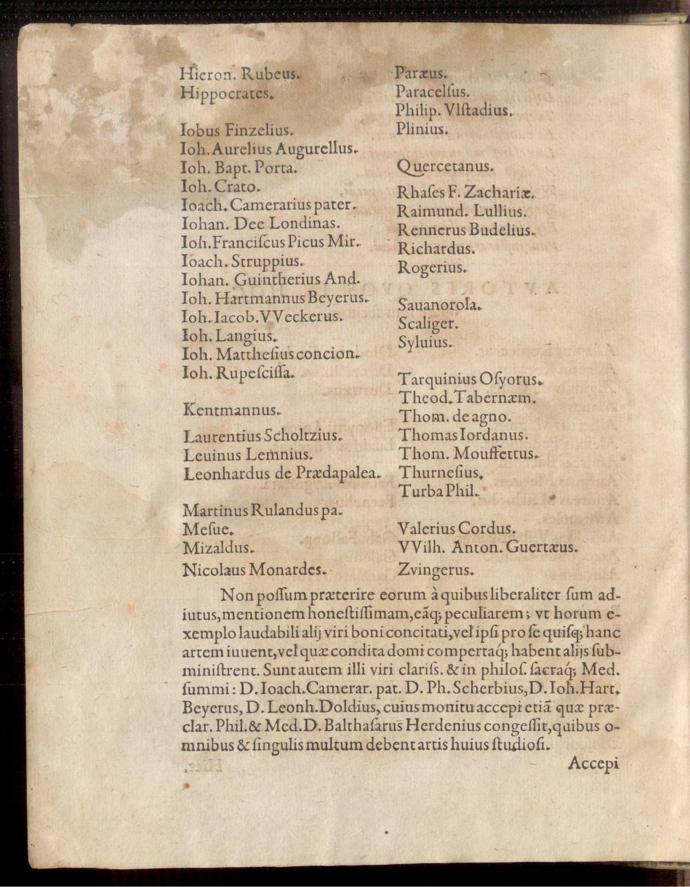 Hieron. Rubeus.
Hippocrates.
Iobus Finzelius.
Ioh. Aurelius Augurellus.
Ioh. Bapt. Porta.
Ioh. Crato.
Ioach. Camerarius pater.
Iohan. Dee Londinas.
Ioh. Franciſcus Picus Mir.
Ioach. Struppius.
Iohan. Guintherius And.
Ioh. Hartmannus Beyerus.
Ioh. Iacob. VVeckerus.
Ioh. Langius.
Ioh. Mattheſius concion.
Ioh. Rupeſciſſa.
Kentmannus.
Laurentius Scholtzius.
Leuinus Lemnius.
Leonhardus de Prædapalea.
Martinus Rulandus pa.
Meſue.
Mizaldus.
Nicolaus Monardes.
Paræus.
Paracelſus.
Philip. Vlſtadius.
Plinius.
Quercetanus.
Rhaſes F. Zachariæ.
Raimund. Lullius.
Rennerus Budelius.
Richardus.
Rogerius.
Sauanorola.
Scaliger.
Syluius.
Tarquinius Oſyorus.
Theod. Tabernæm.
Thom. de agno.
Thomas Iordanus.
Thom. Mouffettus.
Thurneſius.
Turba Phil.
Valerius Cordus.
VVilh. Anton. Guertæus.
Zvingerus.
Non poſſum præterire eorum à quibus liberaliter ſum ad-
iutus, mentionem honeſtiſſimam, eãq; peculiarem; vt horum e-
xemplo laudabili alij viri boni concitati, vel ipſi pro ſe quiſq; hanc
artem iuuent, vel quæ condita domi compertaq; habent alijs ſub-
miniſtrent. Sunt autem illi viri clariſſ. & in philoſ. ſacraq; Med.
ſummi: D. Ioach. Camerar. pat. D. Ph. Scherbius, D. Ioh. Hart.
Beyerus, D. Leonh. Doldius, cuius monitu accepi etiã quæ præ-
clar. Phil. & Med. D. Balthaſarus Herdenius congeſſit, quibus o-
mnibus & ſingulis multum debent artis huius ſtudioſi.
Accepi